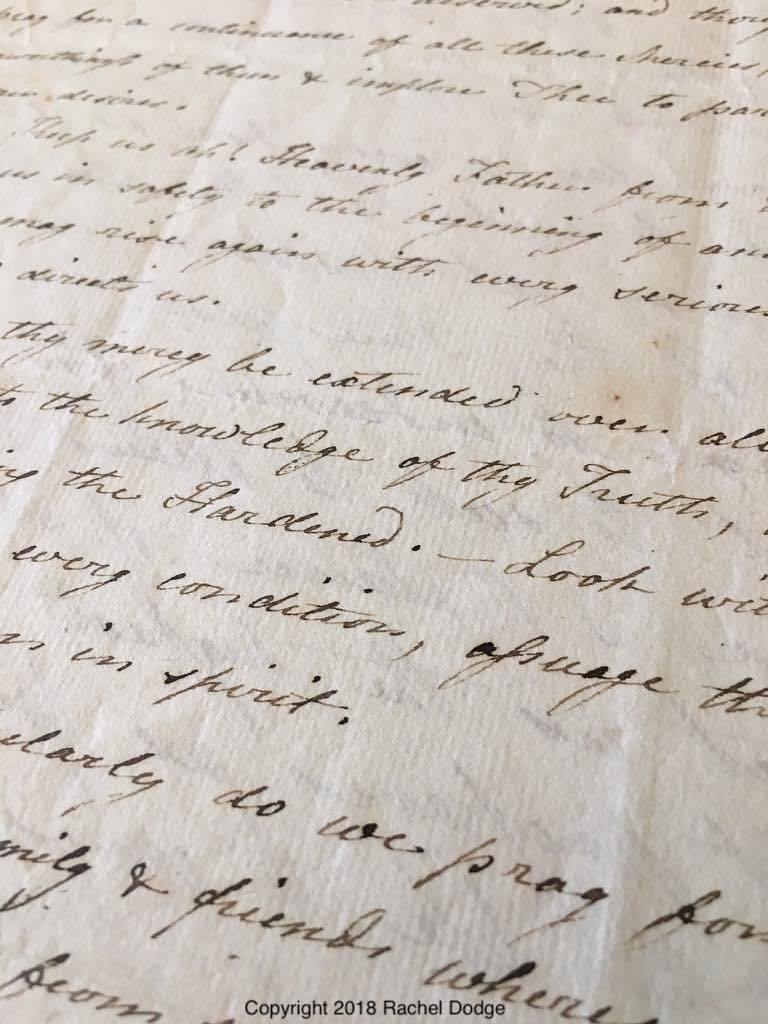 deserved; and thou
pray for a continuance of all these Mercies,
unworthiness of them & implore Thee to par
desires.
Keep us oh! Heavenly Father from
us in safety to the beginning of ano
may rise again with every serious
direct us.
thy mercy be extended over all
to the knowledge of thy Truth,
the Hardened. — Look wit
every condition, assuage th
in spirit.
ularly do we pray for
mily & friends where
from
Copyright 2018 Rachel Dodge